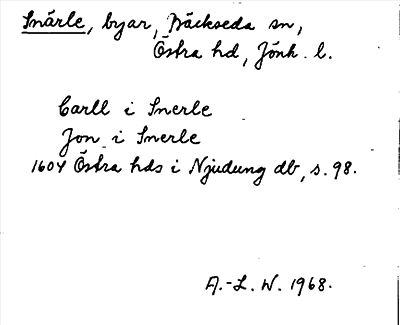 Snärle, byar, Bäckseda sn,
Östra hd, Jönk. l.
Carll i Snerle
Jon i Snerle
1604 Östra hds i Njudung db, s. 98.
A.-L. W. 1968.